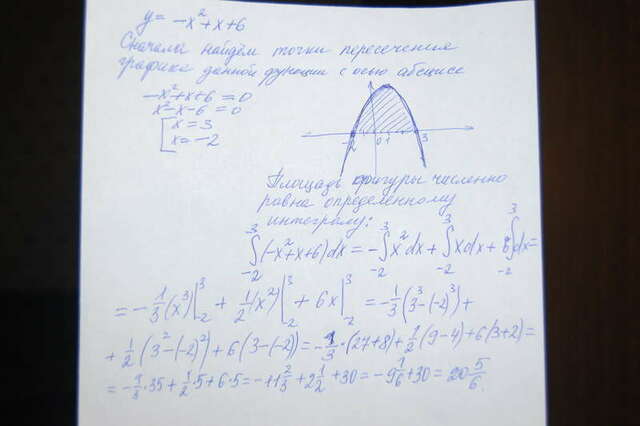 y = -x² + x + 6
Сначала найдём точки пересечения
графика данной функции с осью абсцисс
-x² + x + 6 = 0
x² - x - 6 = 0
[ x = 3
x = -2
-2 0 1 3
Площадь фигуры численно
равна определенному
интегралу:
∫₋₂³ (-x² + x + 6) dx = -∫₋₂³ x² dx + ∫₋₂³ x dx + 6 ∫₋₂³ dx =
= -1/3 (x³)|₋₂³ + 1/2 (x²)|₋₂³ + 6x|₋₂³ = -1/3 (3³ - (-2)³) +
+ 1/2 (3² - (-2)²) + 6 (3 - (-2)) = -1/3 · (27 + 8) + 1/2 (9 - 4) + 6 (3 + 2) =
= -1/3 · 35 + 1/2 · 5 + 6 · 5 = -11 2/3 + 2 1/2 + 30 = -9 1/6 + 30 = 20 5/6.